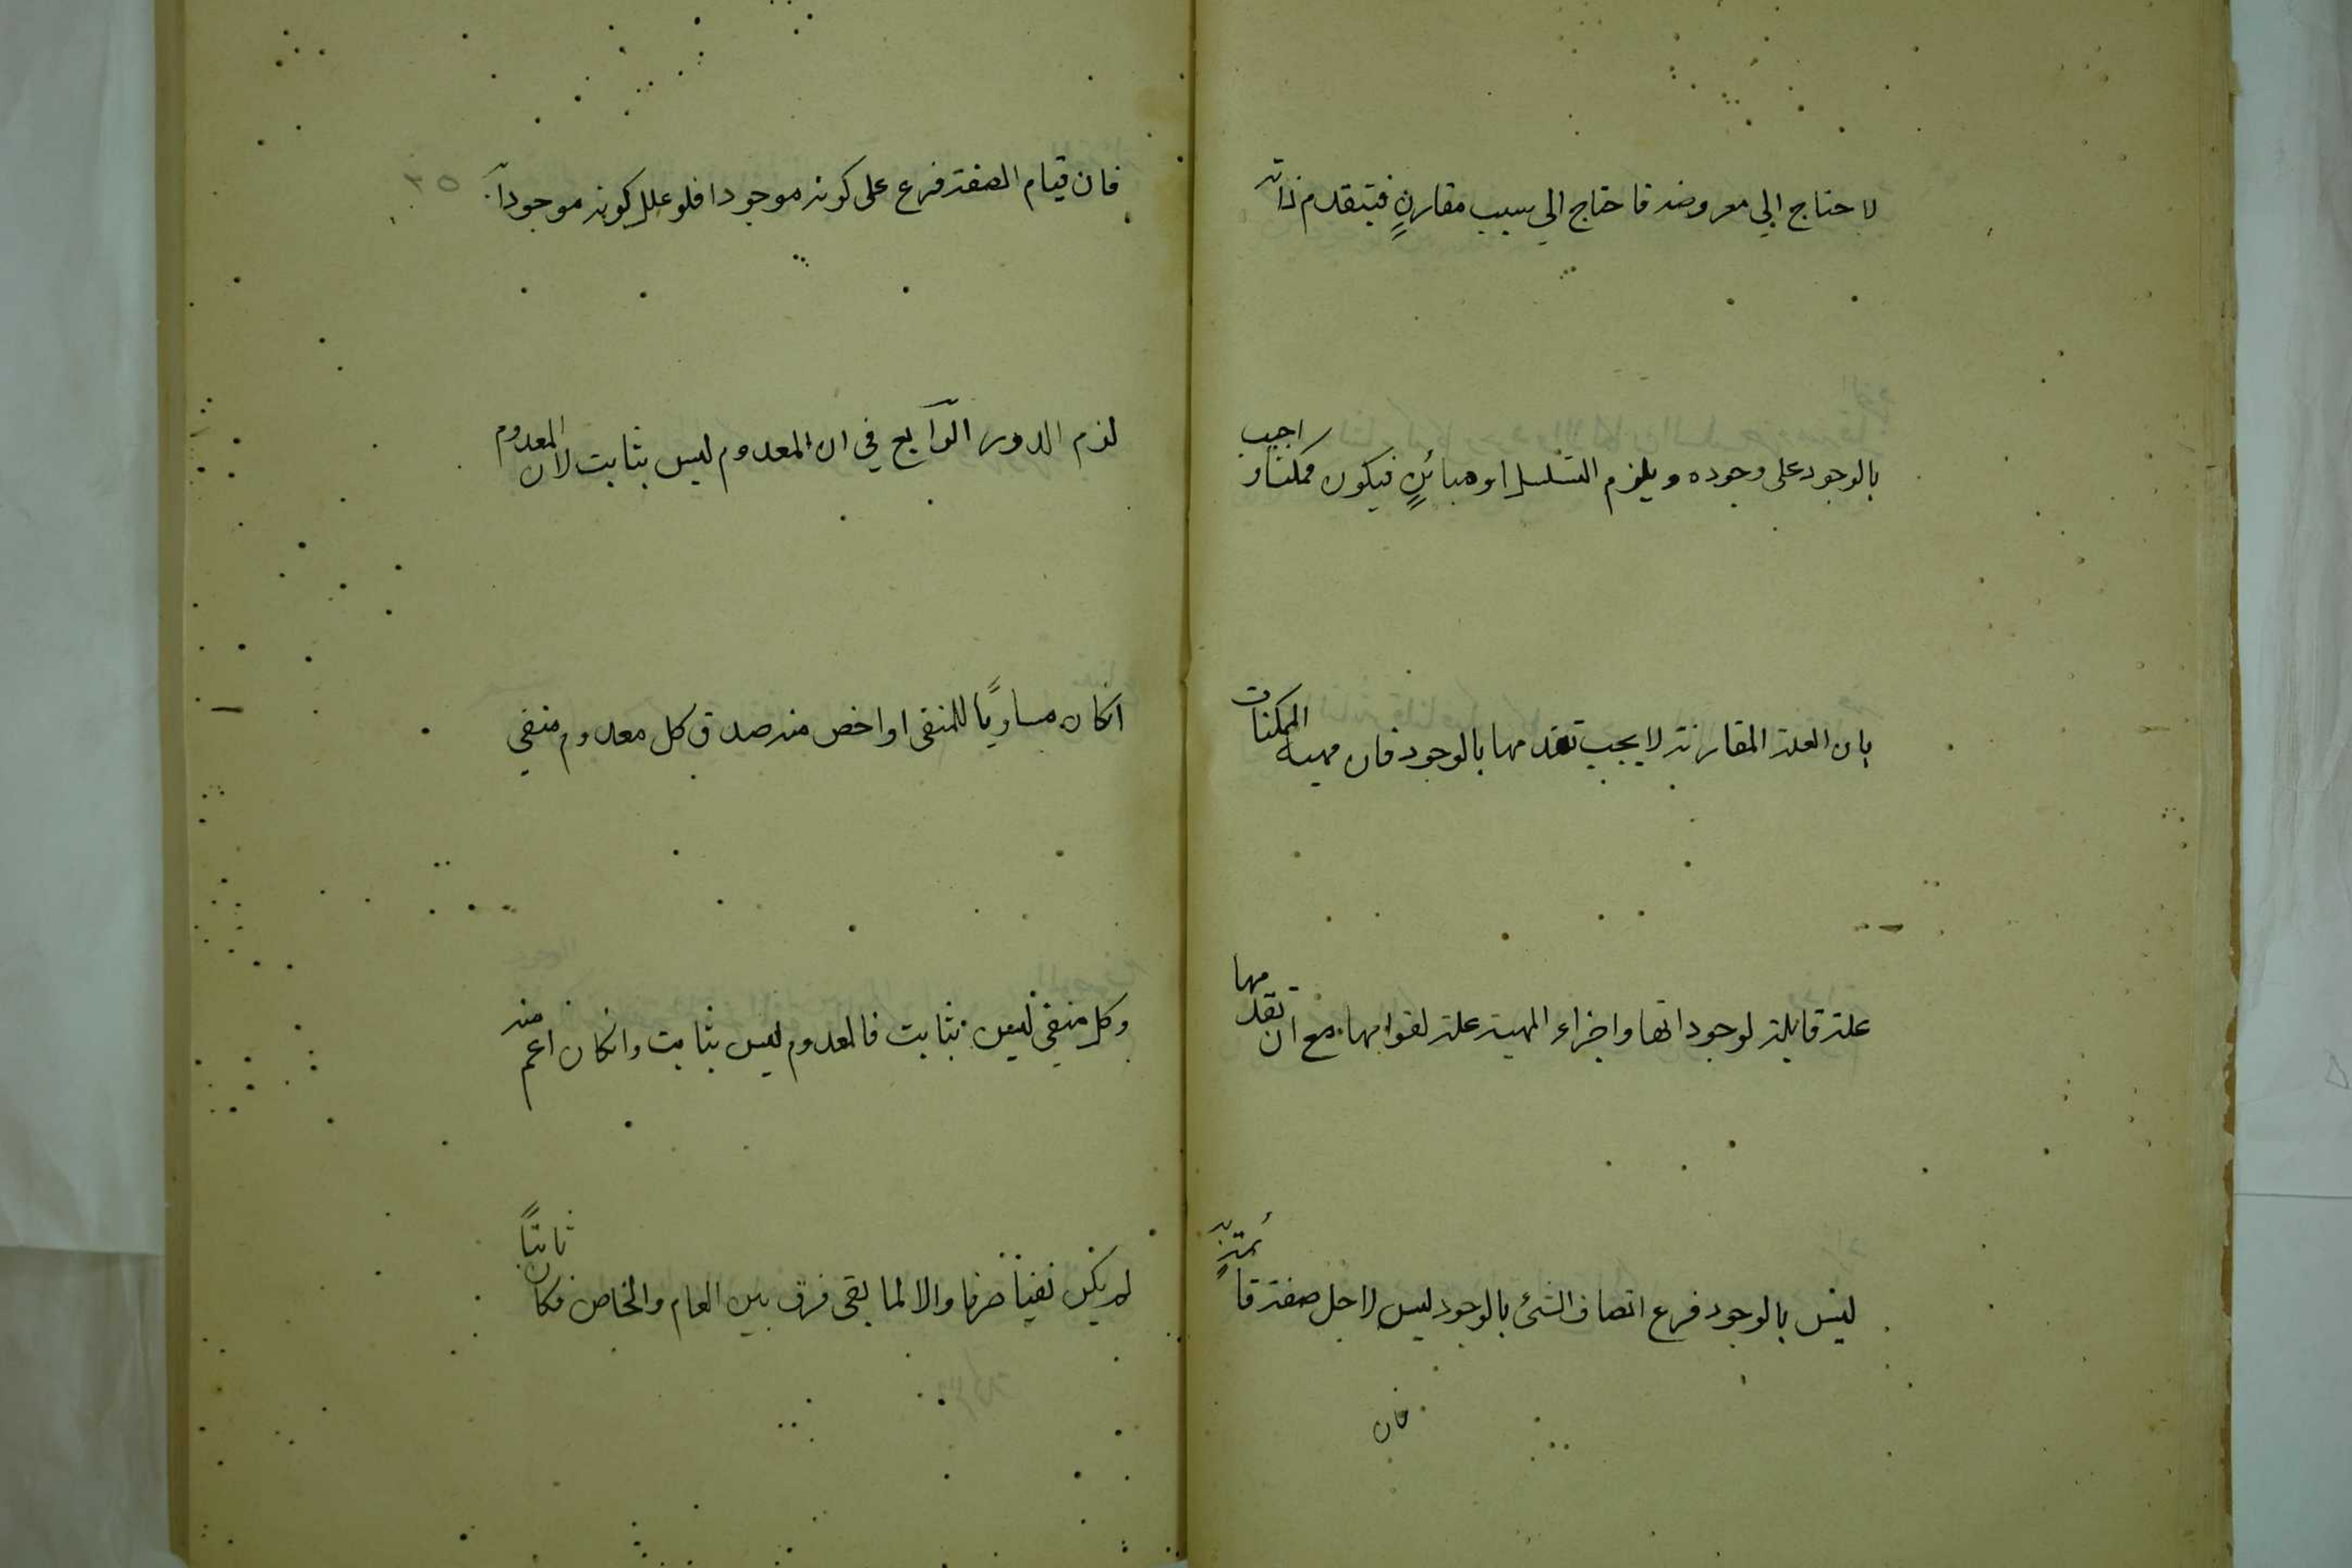 لاحتاج الي معروضه فاحتاج الي سبب مقارنٍ فيتقدم ذاته
بالوجود على وجوده ويلزم التسلسل او مبائنٍ فيكون ممكنا و اجيب
بان العلة المقارنة لا يجب تقدمها بالوجود فان مهية الممكنات
علة قابلة لوجوداتها واجزاء المهية علة لقوامها مع ان تقدمها
ليس بالوجود فرع اتصاف الشئ بالوجود ليس لاجل صفة قائمةٍ به
فان
فان قيام الصفة فرع على كونه موجودا فلو علل كونه موجوداً
لزم الدور الرّابع في ان المعدوم ليس بثابت لان المعدوم
انكان مساويًا للمنفى او اخص منه صدق كل معدوم منفي
وكل منفي ليس بثابت فالمعدوم ليس بثابت وانكان اعم منه
لم يكن نفياً صرفا والا لما بقى فرق بين العام والخاص فكان ثابتًا